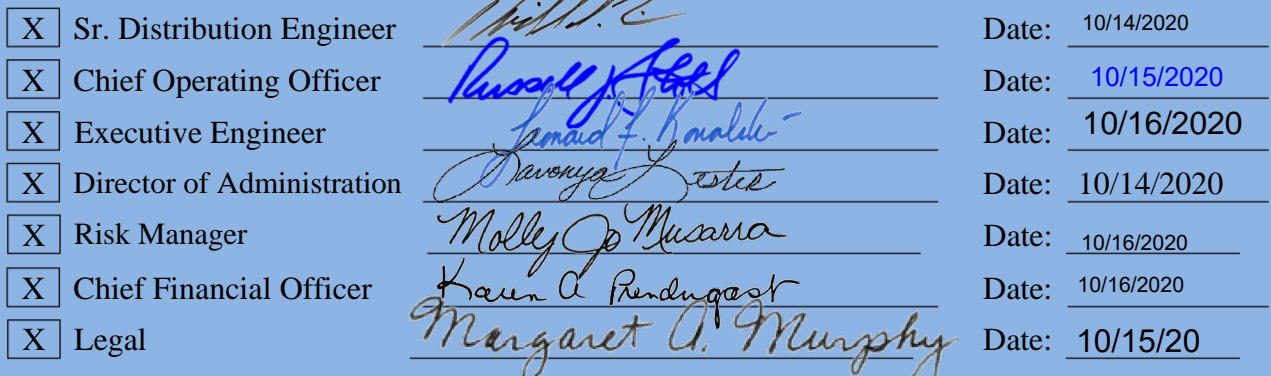 X Sr. Distribution Engineer Date: 10/14/2020
X Chief Operating Officer Russell J. Date: 10/15/2020
X Executive Engineer Leonard F. Kowalski Date: 10/16/2020
X Director of Administration Lavonya Lester Date: 10/14/2020
X Risk Manager Molly Jo Musarra Date: 10/16/2020
X Chief Financial Officer Karen A Prendergast Date: 10/16/2020
X Legal Margaret A. Murphy Date: 10/15/20